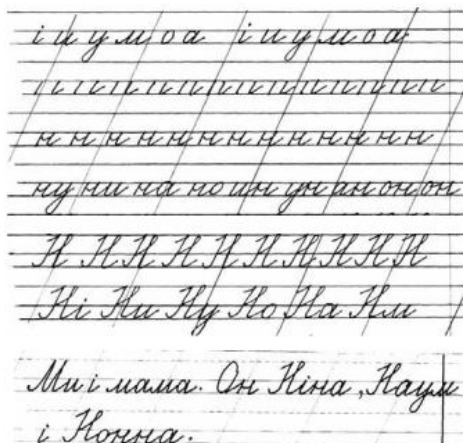 і и у м о а і и у м о а
н н н н н н н н н н н н н
ну ни на но ин ун ан он он
Н Н Н Н Н Н Н Н Н Н
Ні Ни Ну Но На Нм
Ми і мама. Он Ніна, Наум
і Нонна.